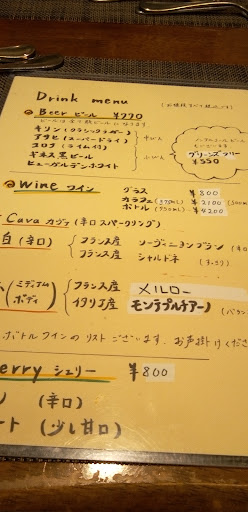 Drink menu
Beer ビール ¥770
ビールは全て瓶ビールになります
キリン(クラシックラガー)
アサヒ(スーパードライ)
コロナ(ライム付)
中びん
ギネス黒ビール
ヒューガルデンホワイト
小びん
グリーンズフリー
¥550
Wine ワイン
グラス ¥800
カラフェ(370ml) ¥2100
ボトル(750ml) ¥4200
Cava カヴァ(辛口スパークリング)
白(辛口)
フランス産 ソーヴィニヨンブラン
フランス産 シャルドネ
(ミディアムボディ)
フランス産 メルロー
イタリア産 モンテプルチアーノ
ボトルワインのリストございます。お声掛けくださ
erry シェリー ¥800
(辛口)
ート (少し甘口)